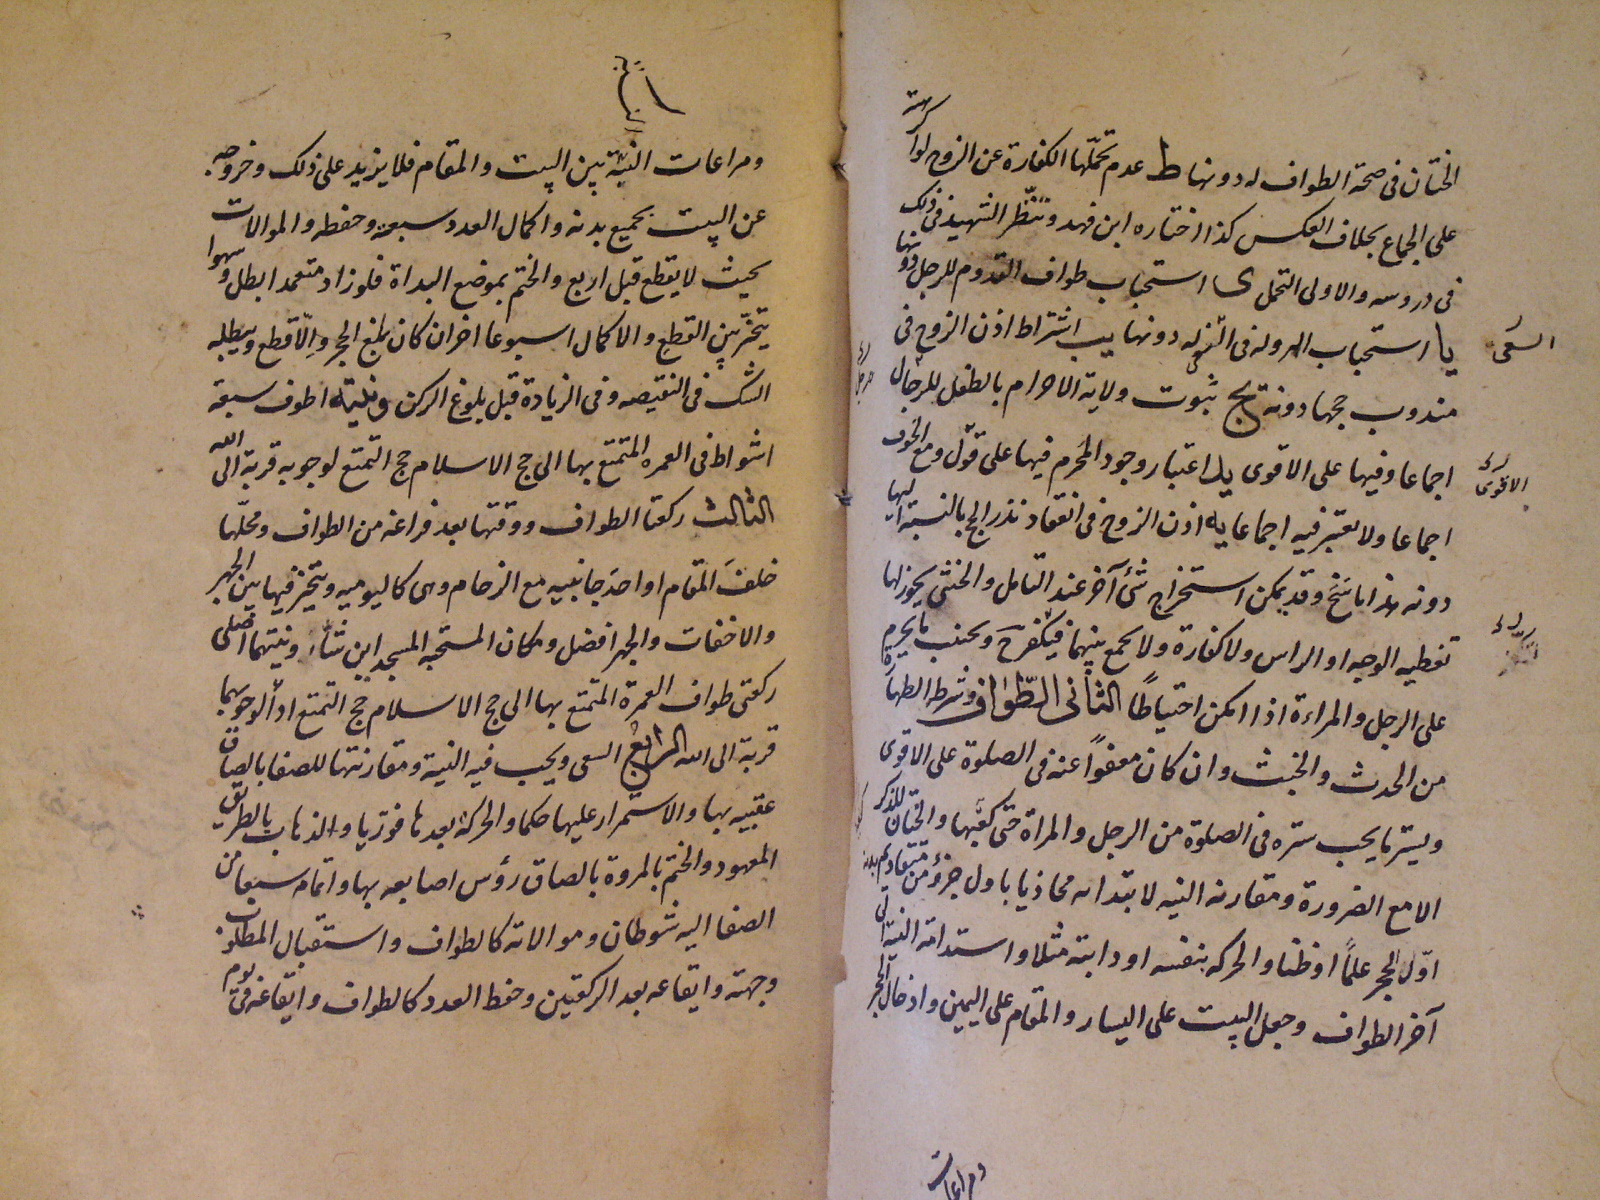 الختان فى صحة الطواف له دونها ط عدم تحملها الكفارة عن الزوج لو اكرهته
على الجماع بخلاف العكس كذا اختاره ابن فهد وتنظر الشهيد فى ذلك
فى دروسه والاولى التحمل ى استحباب طواف القدوم للرجل دونها
يا استحباب الهرولة فى له دونها يب اشتراط اذن الزوج فى
السعى
مندوب حجها دونه يج ثبوت ولاية الاحرام بالطفل للرجال
اجماعا وفيها على الاقوى يد اعتبار وجود المحرم فيها على قول ومع الخوف
الاقوى
اجماعا ولا يعتبر فيه اجماعا يه اذن الزوج فى انعقاد نذر الحج بالنسبة اليها
دونه هذا ما سنح وقد يمكن استخراج شئ آخر عند التامل والخنثى يجوز لها
تغطيه الوجه او الراس ولا كفارة ولا تجمع بينهما فتكفر ح وتجتنب ما يحرم
على الرجل والمراءة اذا امكن احتياطا الثانى الطواف وشرطه الطهارة
من الحدث والخبث وان كان معفوا عنه فى الصلوة على الاقوى
وليستر ما يجب ستره فى الصلوة من الرجل والمراة حتى كعبها والختان للذكر
الا مع الضرورة ومقارنه النيه لابتدائه محاذيا باول جزؤ من مقاديم بدنه
اول الحجر علما او ظنا والحركه بنفسه او دابته مثلا واستدامة النية الى
آخر الطواف وجعل البيت على اليسار والمقام على اليمين وادخال الحجر
ومراعات
ومراعات النية بين البيت والمقام فلا يزيد على ذلك وخروجه
عن البيت بجميع بدنه واكمال العدد سبعة وحفظه والموالات
بحيث لا يقطع قبل اربع والختم بموضع البداة فلو زاد متعمدا بطل وسهوا
يتخير بين القطع والاكمال اسبوعا اخر ان كان بلغ الحجر والا قطع ويبطله
الشك فى النقيصه وفى الزيادة قبل بلوغ الركن ونيته اطوف سبعة
اشواط فى العمره المتمتع بها الى حج الاسلام حج التمتع لوجوبه قربة الى الله
الثالث ركعتا الطواف ووقتها بعد فراغه من الطواف ومحلها
خلف المقام او احد جانبيه مع الزحام وهى كاليوميه ويتخير فيها بين الجهر
والاخفات والجهر افضل ومكان المستحبه المسجد اين شاء ونيتهما اصلى
ركعتى طواف العمرة المتمتع بها الى حج الاسلام حج التمتع اداْ لوجوبهما
قربة الى الله الرابع السعى ويجب فيه النية ومقارنتها للصفا بالصاق
عقبيه بها والاستمرار عليها حكما والحركة بعدها فوريا والذهاب بالطريق
المعهود والختم بالمروة بالصاق رؤس اصابعه بها واتمامه سبعا من
الصفا اليه شوطان وموالاته كالطواف واستقبال المطلوب
وجهته وايقاعه بعد الركعتين وحفظ العدد كالطواف وايقاعه فى يوم